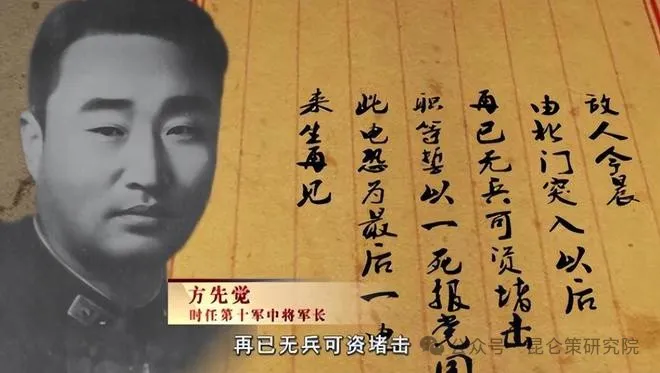 敌人今晨
由北门突入以后
再已无兵可资堵击
职等誓以一死报党国
此电恐为最后一电
来生再见
方先觉
时任第十军中将军长
再已无兵可资堵击
公众号 · 昆仑策研究院